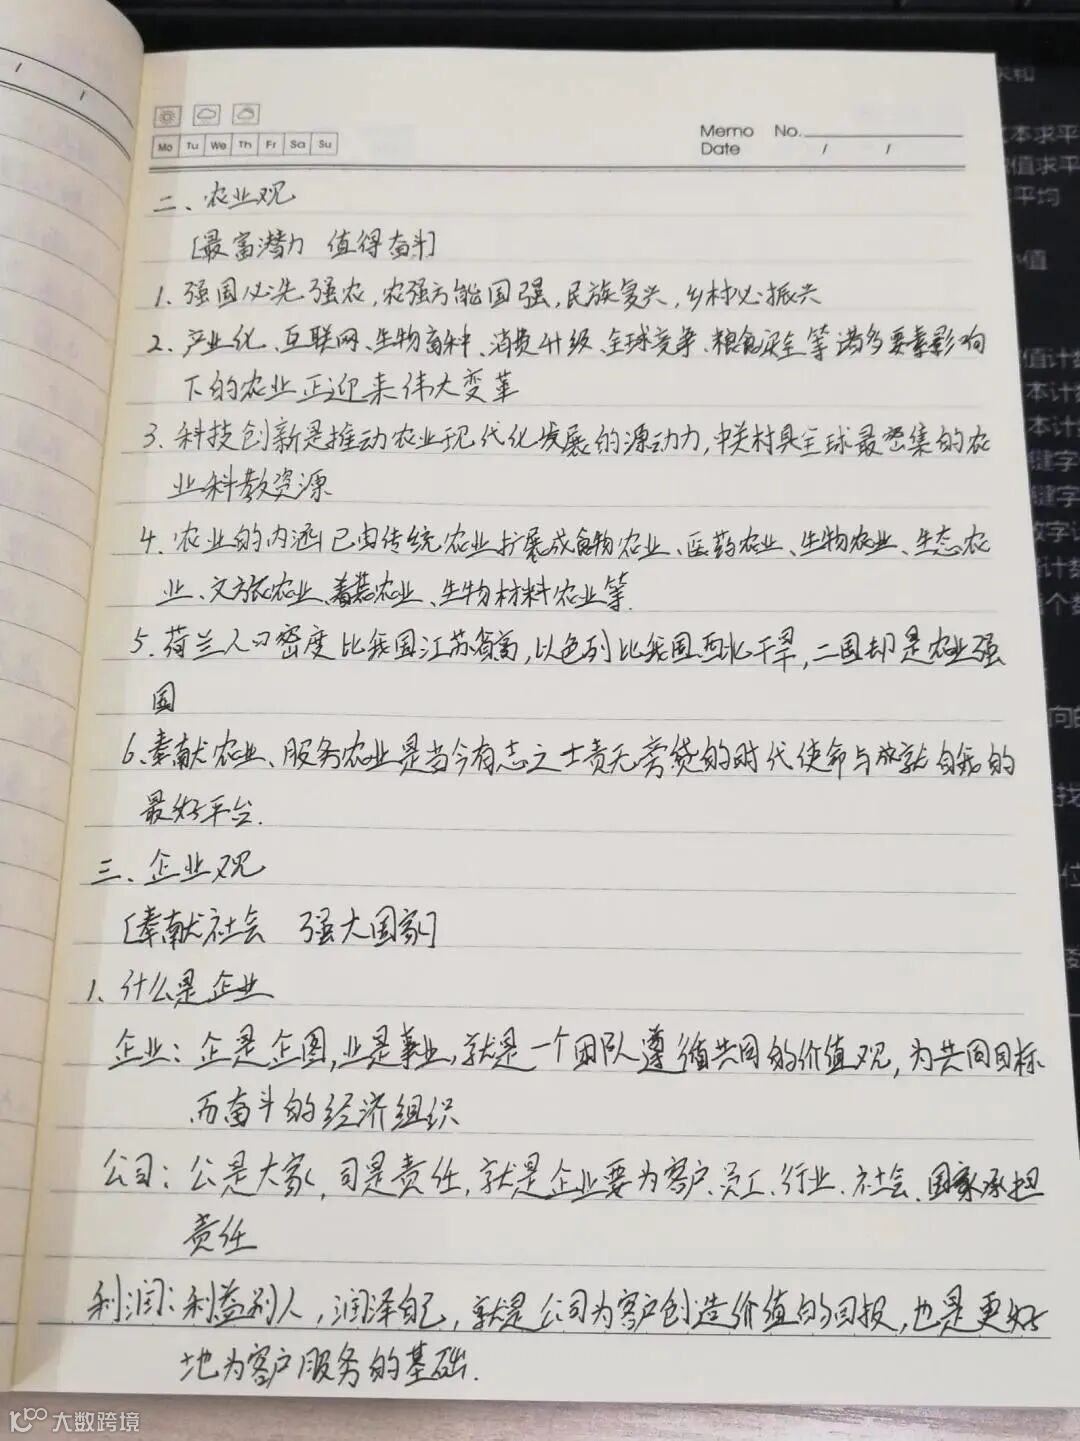 Mo Tu We Th Fr Sa Su
Memo No.
Date / /
二、农业观
[最富潜力 值得奋斗]
1、强国必先强农,农强方能国强,民族复兴,乡村必振兴
2、产业化、互联网、生物育种、消费升级、全球竞争、粮食安全等诸多要素影响
下的农业正迎来伟大变革
3、科技创新是推动农业现代化发展的源动力,中关村具全球最密集的农
业科教资源
4、农业的内涵已由传统农业扩展成食物农业、医药农业、生物农业、生态农
业、文旅农业、着装农业、生物材料农业等.
5、荷兰人口密度比我国江苏省高,以色列比我国西北干旱,二国却是农业强
国
6、奉献农业、服务农业是当今有志之士责无旁贷的时代使命与成就自我的
最好平台.
三、企业观
[奉献社会 强大国家]
1、什么是企业
企业:企是企图,业是事业,就是一个团队遵循共同的价值观,为共同目标
而奋斗的经济组织
公司:公是大家,司是责任,就是企业要为客户、员工、行业、社会、国家承担
责任
利润:利益别人,润泽自己,就是公司为客户创造价值的回报,也是更好
地为客户服务的基础.
求和
本求平
值求平
平均
值
值计数
本计数
本计
键字
键字
数字计
计数
个数
向的
找
位
大数跨境